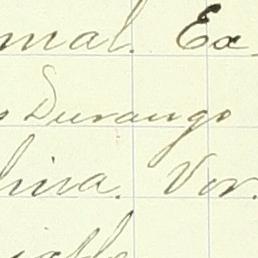 mal. Ex
s Durango
lina. Ver.